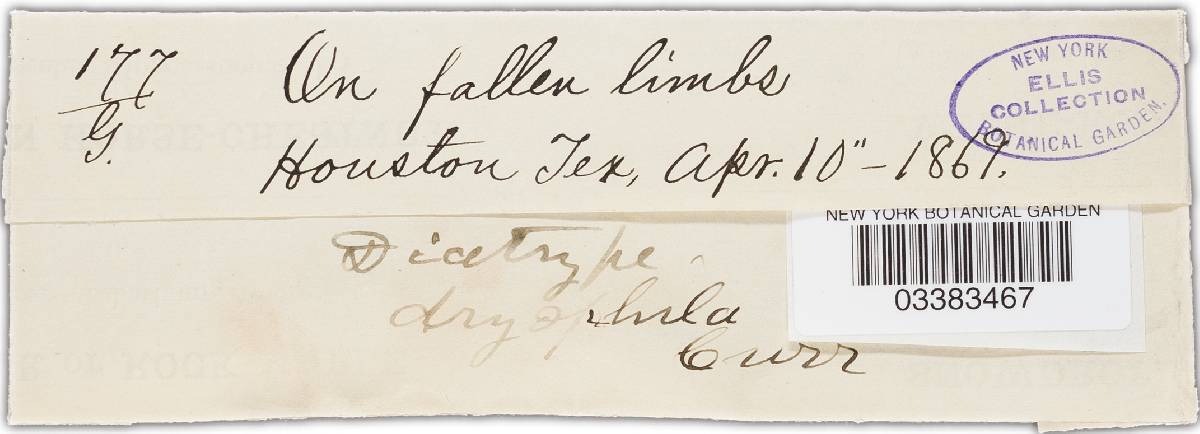 177
G.
On fallen limbs
Houston Tex, Apr. 10" - 1869.
NEW YORK
ELLIS
COLLECTION
BOTANICAL GARDEN.
NEW YORK BOTANICAL GARDEN
03383467
Diatrype
dryophila
Curr